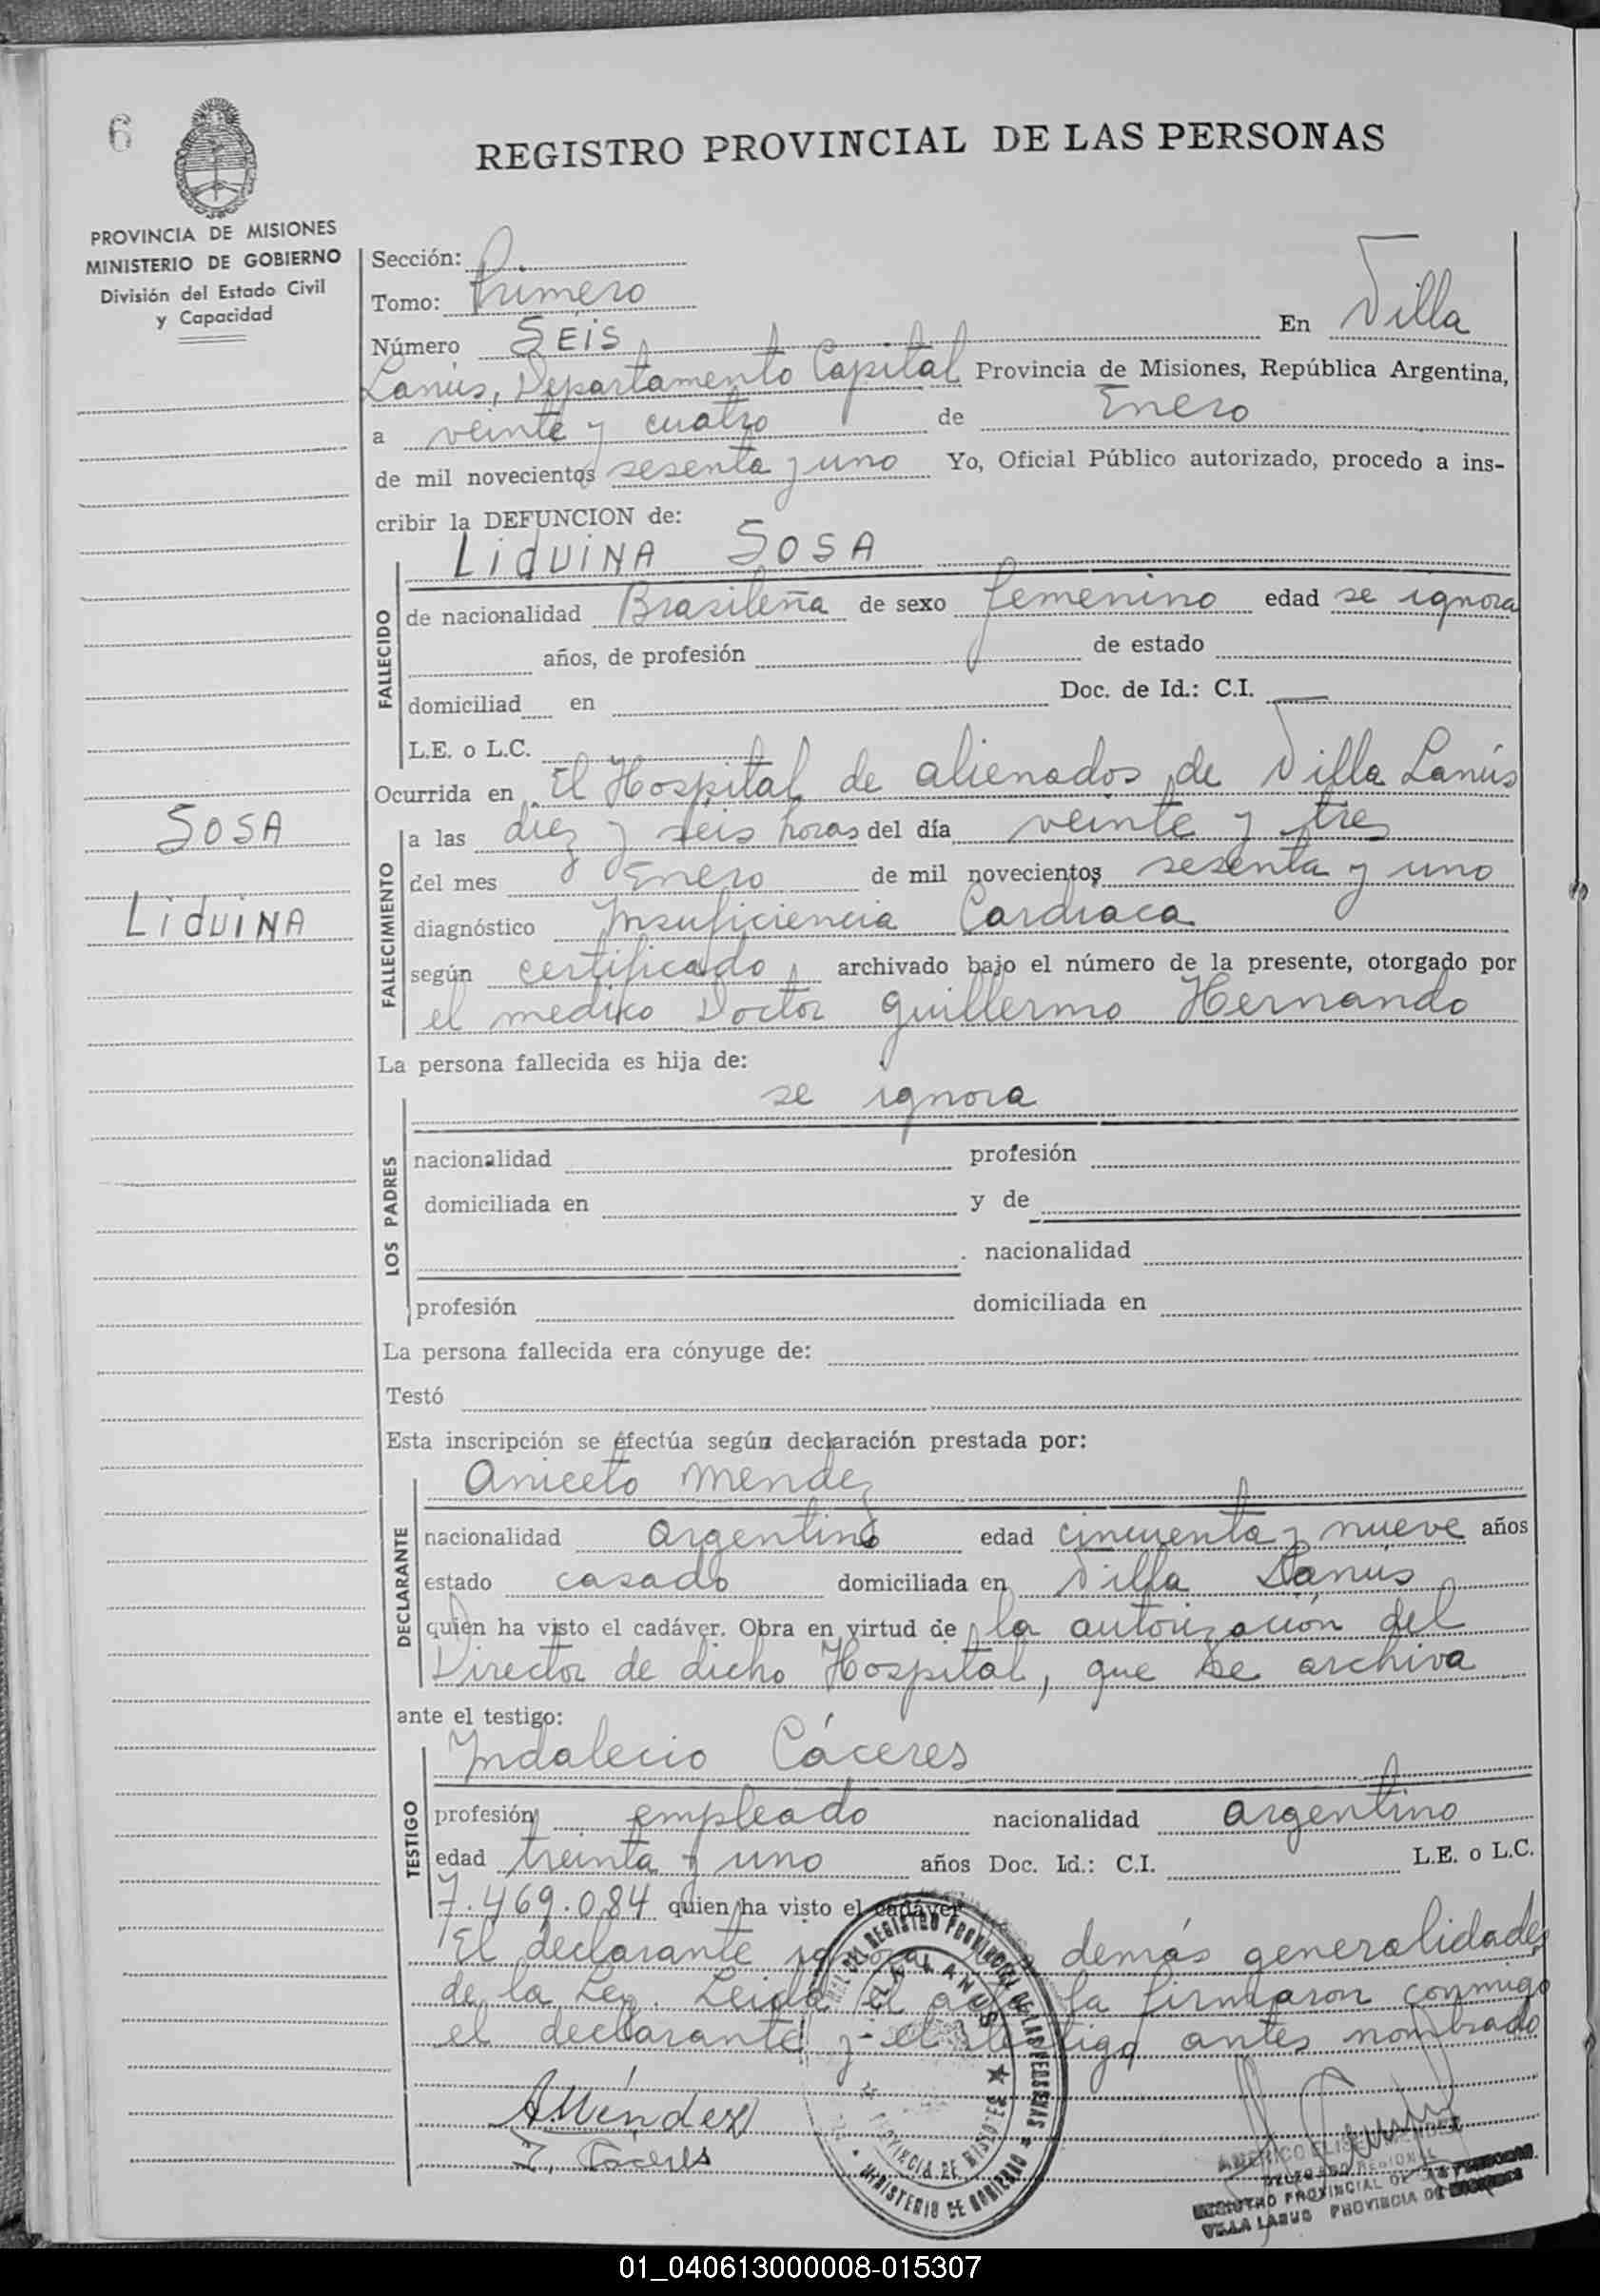 6
REGISTRO PROVINCIAL DE LAS PERSONAS
PROVINCIA DE MISIONES
MINISTERIO DE GOBIERNO
División del Estado Civil
y Capacidad
Sección:
Tomo: Primero
Número SEiS En Villa
Lanús, Departamento Capital Provincia de Misiones, República Argentina,
a veinte y cuatro de Enero
de mil novecientos sesenta y uno Yo, Oficial Público autorizado, procedo a ins-
cribir la DEFUNCION de:
LidUiNA SOSA
FALLECIDO
de nacionalidad Brasileña de sexo femenino edad se ignora
años, de profesión de estado
domiciliad en Doc. de Id.: C.I. —
L.E. o L.C.
Ocurrida en El Hospital de alienados de Villa Lanús
SOSA
LidUiNA
FALLECIMIENTO
a las diez y seis horas del día veinte y tres
del mes Enero de mil novecientos sesenta y uno
diagnóstico Insuficiencia Cardiaca
según certificado archivado bajo el número de la presente, otorgado por
el medico Doctor Guillermo Hernando
La persona fallecida es hija de:
se ignora
LOS PADRES
nacionalidad profesión
domiciliada en y de
nacionalidad
profesión domiciliada en
La persona fallecida era cónyuge de:
Testó
Esta inscripción se efectúa según declaración prestada por:
Aniceto Mendez
DECLARANTE
nacionalidad argentino edad cincuenta y nueve años
estado casado domiciliada en Villa Lanús
quien ha visto el cadáver. Obra en virtud de la autorización del
Director de dicho Hospital, que se archiva
ante el testigo:
Indalecio Cáceres
TESTIGO
profesión empleado nacionalidad argentino
edad treinta y uno años Doc. Id.: C.I. L.E. o L.C.
7.469.084 quien ha visto el cadáver
El declarante ignora demás generalidades
de la Ley. Leida el acta la firmaron conmigo
el declarante y el testigo antes nombrado
A Méndez
I. Cáceres
DEL REGISTRO PROVINCIAL DE LAS PERSONAS
VILLA LANUS
PROVINCIA DE MISIONES
MINISTERIO DE GOBIERNO
AMERICO
DELEGADO REGIONAL
REGISTRO PROVINCIAL DE LAS PERSONAS
VILLA LANUS PROVINCIA DE MISIONES
01_040613000008-015307